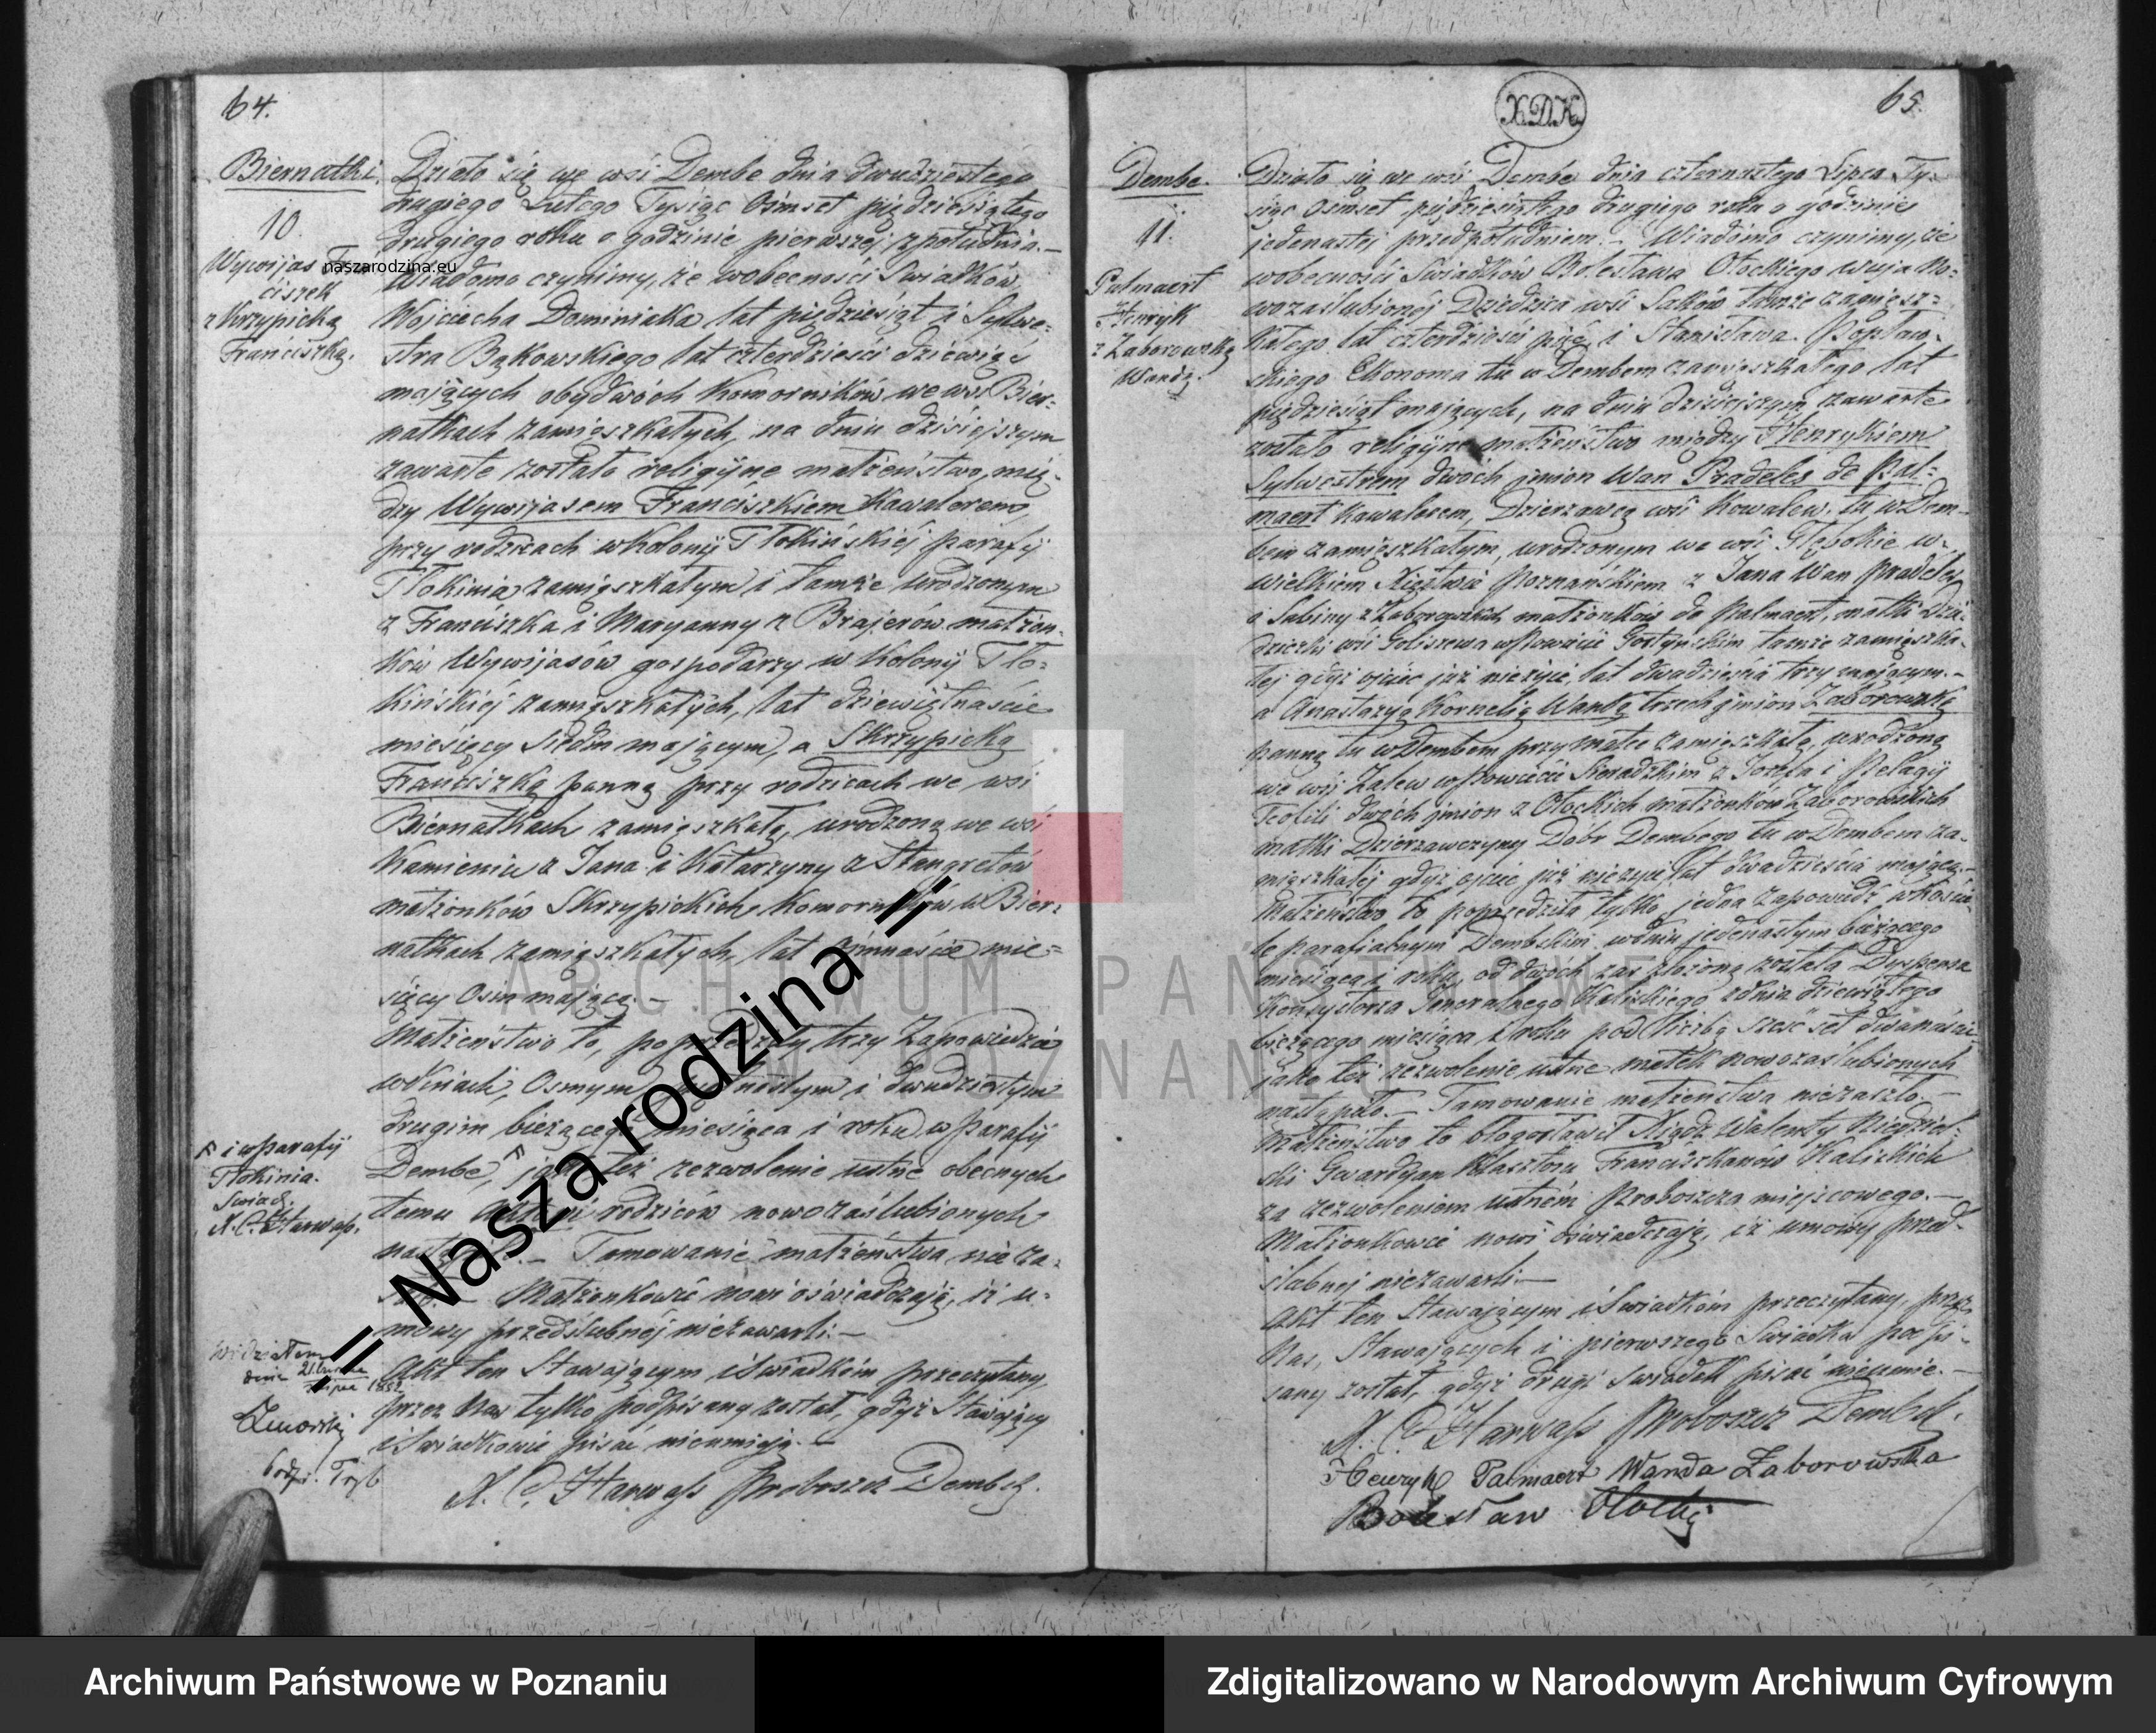 64.
Biernatki.
10.
Wywijas Fran
ciszek
z Skrzypicką
Franciszką.
Działo się we wsi Dembe dnia dwudziestego
drugiego Lutego Tysiąc Ośmset pięćdziesiątego
drugiego roku o godzinie pierwszej z południa.—
Wiadomo czynimy, że wobecności Świadków,
Wojciecha Dominiaka lat pięćdziesiąt i Sylwe=
stra Bąkowskiego lat czterdzieści dziewięć
mających obydwóch Komorników we wsi Bier=
natkach zamięszkałych, na dniu dzisiejszym
zawarte zostało religijne małżeństwo, mię=
dzy Wywijasem Franciszkiem Kawalerem,
przy rodzicach w Kolonij Tłokińskiéj parafij
Tłokinia zamięszkałym i tamże urodzonym
z Franciszka i Maryanny z Brajerów małżon=
ków Wywijasów gospodarzy w Kolonij Tło=
kińskiéj zamięszkałych, lat dziewiętnaście
miesięcy siedm mającym, a Skrzypicką
Franciszką panną przy rodzicach we wsi
Biernatkach zamięszkałą, urodzoną we wsi
Kamieniu z Jana i Katarzyny z Stangretów
małżonków Skrzypickich Komorników w Bier=
natkach zamięszkałych, lat ośmnaście mie=
sięcy Ośm mającą.—
Małżeństwo to, poprzedziły trzy Zapowiedzie
w dniach, Osmym, piętnastym i dwudziestym
drugim bieżącego miesiąca i roku w Parafij
Dembe, jako też zezwolenie ustne obecnych
temu Aktowi rodziców nowozaślubionych
nastąpiło.— Tamowanie małżeństwa nie za=
szło.— Małżonkowie nowi oświadczają, iż u=
mowy przedślubnéj niezawarli.—
Akt ten Stawającym i Świadkom przeczytany,
przez Nas tylko podpisany został, gdyż Stawający
i Świadkowie pisać nieumieją.—
X. C. Harwass Proboszcz Dembsk.
i w parafij
Tłokinia.
Świad.
X. C. Harwass.
Widziałem
dnia 21
Lipca 1852
Podp. Tryb
65.
XDK
Dembe.
11.
Palmaert
Henryk
z Zaborowską
Wandą.
Działo się we wsi Dembe dnia czternastego Lipca Ty=
siąc Ośmset pięćdziesiątego drugiego roku o godzinie
jedenastej przedpołudniem.— Wiadomo czynimy, że
wobecności Świadków Bolesława Otockiego wuja No=
wozaślubionéj Dziedzica wsi Saków tamże zamięsz=
kałego lat czterdzieści pięć i Stanisława Popław=
skiego Ekonoma tu w Dembem zamięszkałego lat
pięćdziesiąt mających, na dniu dzisiejszym zawarte
zostało religijne małżeństwo między Henrykiem
Sylwestrem dwóch imion Wan Pradeles de Pal=
maert Kawalerem, Dzierżawcą wsi Kowalew. tu w Dem=
bem zamięszkałym, urodzonym we wsi Głębokie w
wielkiem Xięstwie Poznańskiem z Jana Wan Pradeles
i Sabiny z Zaborowskich małżonków de Palmaert, matki Dzie=
dziczki wsi Goliszewa w Powiecie Gostyńskim tamże zamięszka=
łej gdyż ojciec już nieżyie, lat dwadzieścia trzy mającym.—
a Anastazyą Kornelią Wandą trzech imion Zaborowską
panną tu w Dembem przy matce zamięszkałą, urodzoną
we wsi Zalew w Powiecie Sieradzkim z Józefa i Pelagij
Teofili dwóch imion z Otockich małżonków Zaborowskich
matki Dzierżawczyny Dóbr Dembego tu w Dembem za=
mięszkałej gdyż ojciec już nieżyie, lat dwadzieścia mającą.—
Małżeństwo to poprzedziła tylko jedna Zapowiedź w Koście=
le parafialnym Dembskim w dniu jedenastym bieżącego
miesiąca i roku, od dwóch zaś złożoną została Dyspensa
Konsystorza Jeneralnego Kaliskiego z dnia dziewiątego
bieżącego miesiąca i roku pod liczbą sześćset dwanaście
jako też zezwolenie ustne matek nowozaślubionych
nastąpiło.— Tamowanie małżeństwa niezaszło.—
Małżeństwo to błogosławił Xiądz Walenty Niedziel=
ski Gwardyan Klasztoru Franciszkanów Kaliskich
za zezwoleniem ustném Proboszcza miejscowego.—
Małżonkowie nowi oświadczają, iż umowy przed=
ślubnej niezawarli.—
Akt ten Stawającym i Świadkom przeczytany, przez
Nas, Stawających i pierwszego Świadka podpi=
sany został, gdyż drugi Świadek pisać nieumie.—
X. C. Harwass Proboszcz Dembsk.
Henryk Palmaert Wanda Zaborowska
Bolesław Otocki
naszarodzina.eu
= Nasza rodzina =
ARCHIWUM PAŃSTWOWE
W POZNANIU
Archiwum Państwowe w Poznaniu
Zdigitalizowano w Narodowym Archiwum Cyfrowym